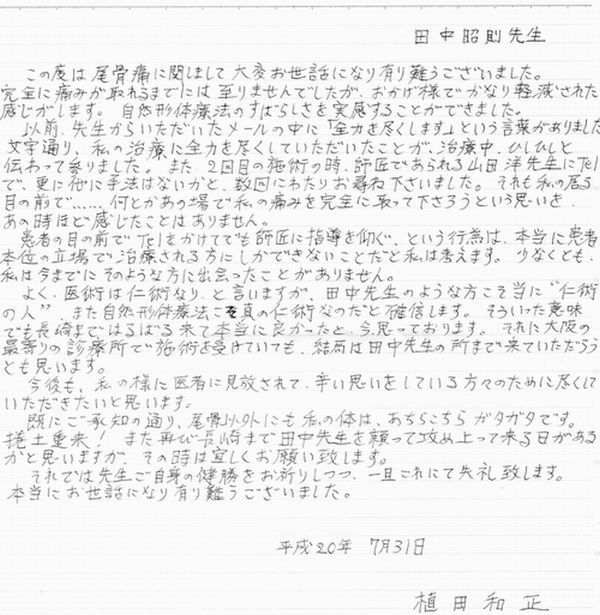 田中昭則先生
この度は尾骨痛に関しまして大変お世話になり有り難うございました。
完全に痛みが取れるまでには至りませんでしたが、おかげ様でかなり軽減された
感じがします。自然形体療法のすばらしさを実感することができました。
以前、先生からいただいたメールの中に「全力を尽くします」という言葉がありました
文字通り、私の治療に全力を尽くしていただいたことが、治療中、ひしひしと
伝わって参りました。また、2回目の施術の時、師匠であられる山田洋先生にTel
で、更に他に手法はないかと、数回にわたりお尋ね下さいました。それも私の居る
目の前で……。何とかあの場で私の痛みを完全に取って下さろうという思いを、
あの時ほど感じたことはありません。
患者の目の前でTelをかけてでも師匠に指導を仰ぐ、という行為は、本当に患者
本位の立場で治療される方にしかできないことだと私は考えます。少なくとも、
私は今までにそのような方に出会ったことがありません。
よく、医術は仁術なり、と言いますが、田中先生のような方こそ当に“仁術
の人”、また自然形体療法こそ真の仁術なのだと確信します。そういった意味
でも長崎まではるばる来て本当に良かったと、今思っております。それに大阪の
最寄りの診療所で施術を受けていても、結局は田中先生の所まで来ていただろう
とも思います。
今後も、私の様に医者に見放されて、辛い思いをしている方々のために尽くして
いただきたいと思います。
既にご承知の通り、尾骨以外にも私の体は、あちらこちらガタガタです。
捲土重来！また再び長崎まで田中先生を頼って攻め上って来る日がある
かと思いますが、その時は宜しくお願い致します。
それでは先生ご自身の健勝をお祈りしつつ、一旦これにて失礼致します。
本当にお世話になり有り難うございました。
平成20年 7月31日
植田和正